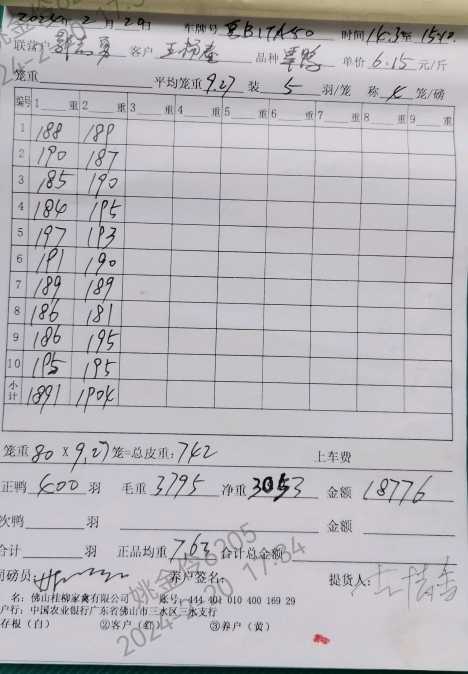 2024年2月29日 车牌号 BITA50 时间14.3至15.10
联营户 客户 品种 单价6.15元/斤
笼重 平均笼重9.27 装 5 羽/笼 称 4 笼/磅
编号 1 重 2 重 3 重 4 重 5 重 6 重 7 重 8 重 9 重
1 188 189
2 190 187
3 185 190
4 184 195
5 197 193
6 191 190
7 189 189
8 186 181
9 186 195
10 195 195
小计 1891 1904
笼重80×9.27笼=总皮重:742 上车费
正鸭 400 羽 毛重 3795 净重 3053 金额 18776
次鸭 羽 金额
合计 羽 正品均重 7.63 合计总金额
司磅员: 养户签名: 提货人:
名: 佛山桂柳家禽有限公司 账号: 444 401 010 400 169 29
户行: 中国农业银行广东省佛山市三水区三水支行
存根（白） ②客户（红） ③养户（黄）
姚金伶6305